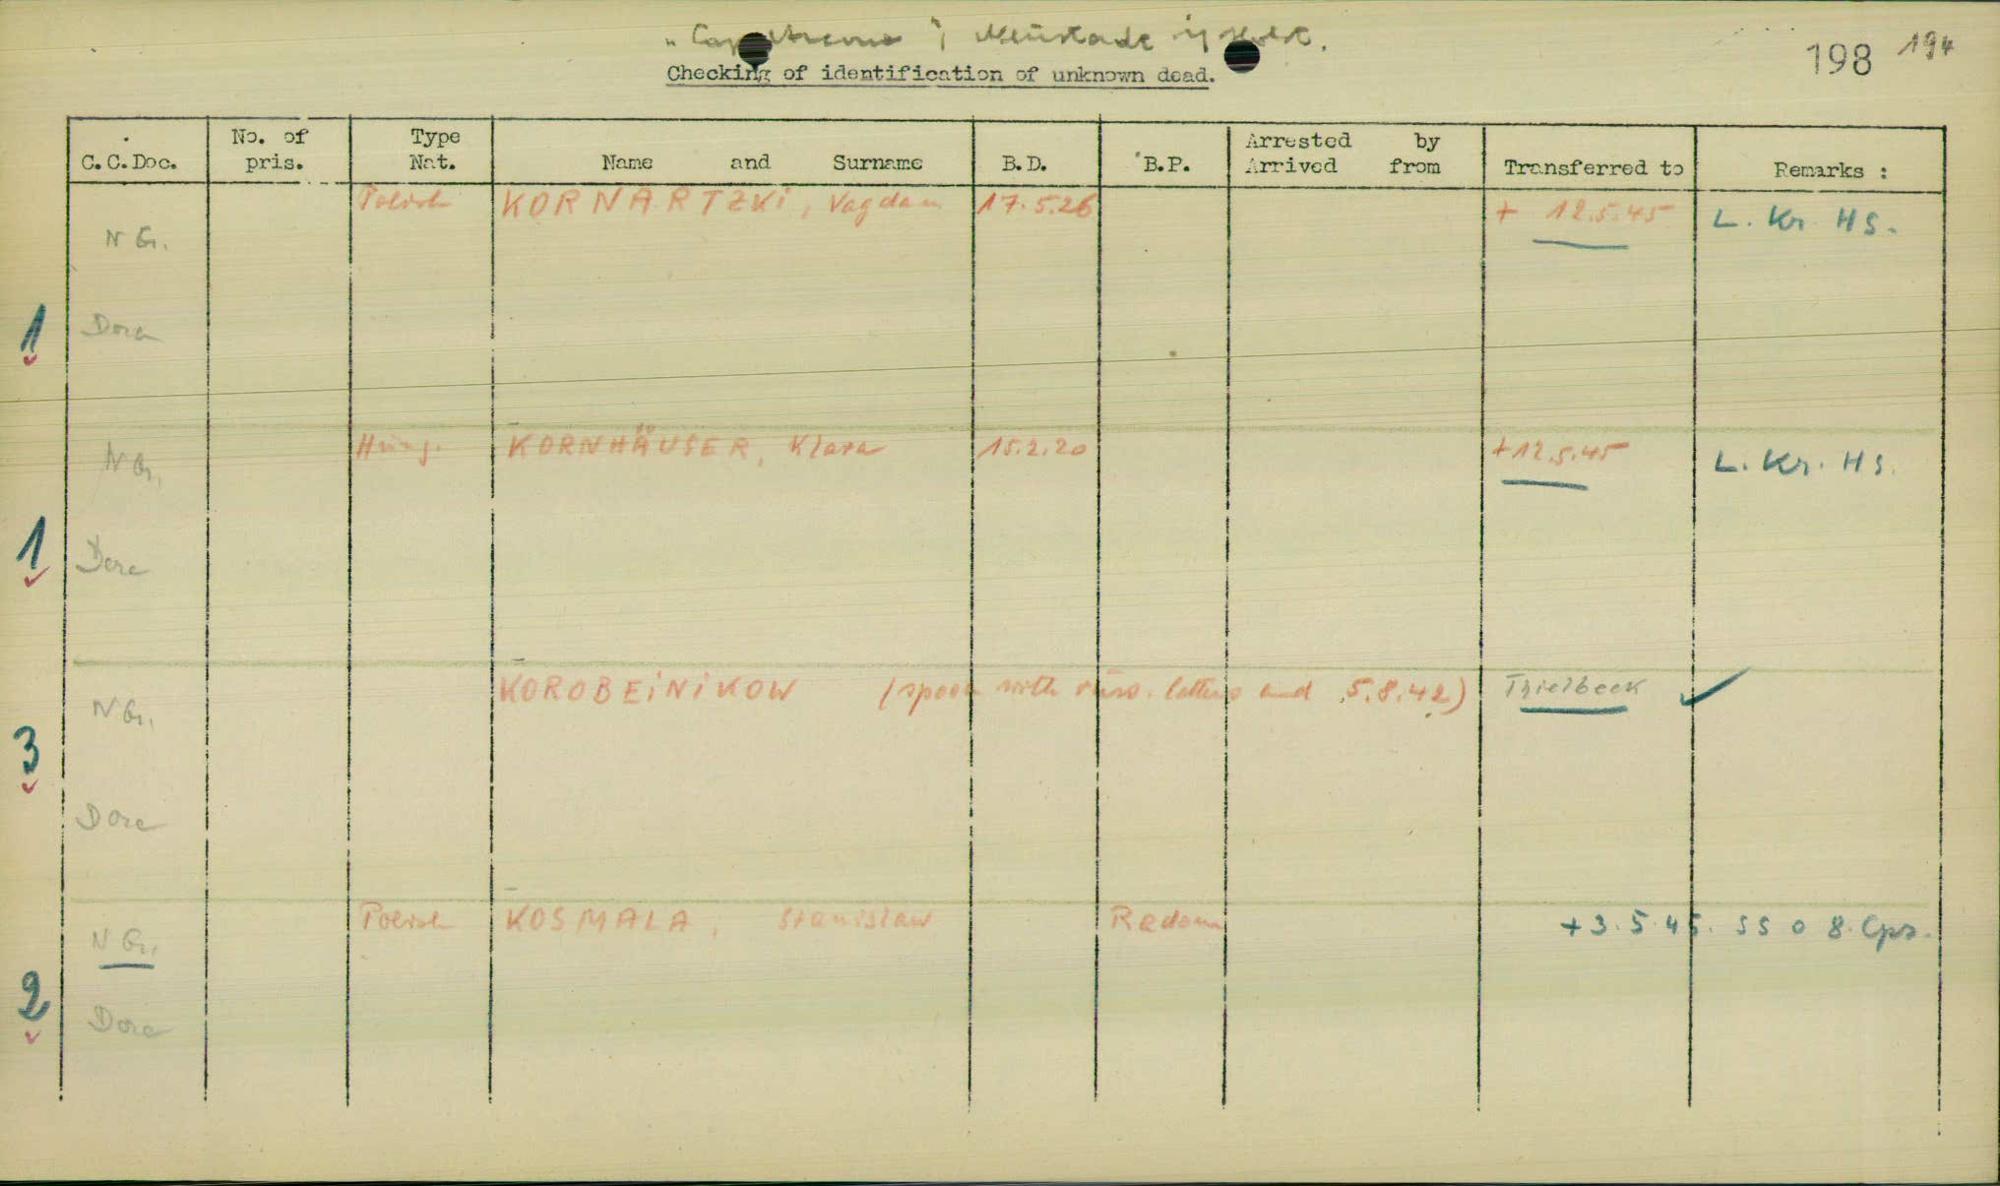 Neustadt i/ Holst.
Checking of identification of unknown dead.
198 194
C.C.Doc. No. of pris. Type Nat. Name and Surname B.D. B.P. Arrested by Arrived from Transferred to Remarks :
Polish KORNARTZKi, Vagdam 17.5.26 + 12.5.45 L. Kr. HS.
N G.
1 Dora
Hung. KORNHÄUSER, Klara 15.2.20 +12.5.45 L. Kr. HS.
N G.
1 Dora
KOROBEiNiKOW (spoon with russ. letters and 5.8.42) Thielbeck
N G.
3
Dora
Polish KOSMALA, Stanislaw Radom +3.5.45. SS 0 8. Cps.
N G.
2 Dora